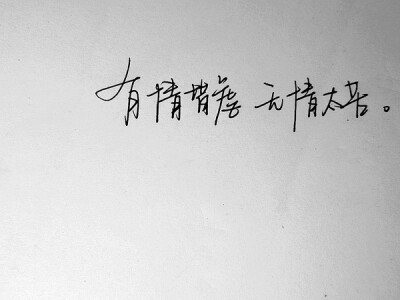 有情皆虐 无情太苦。